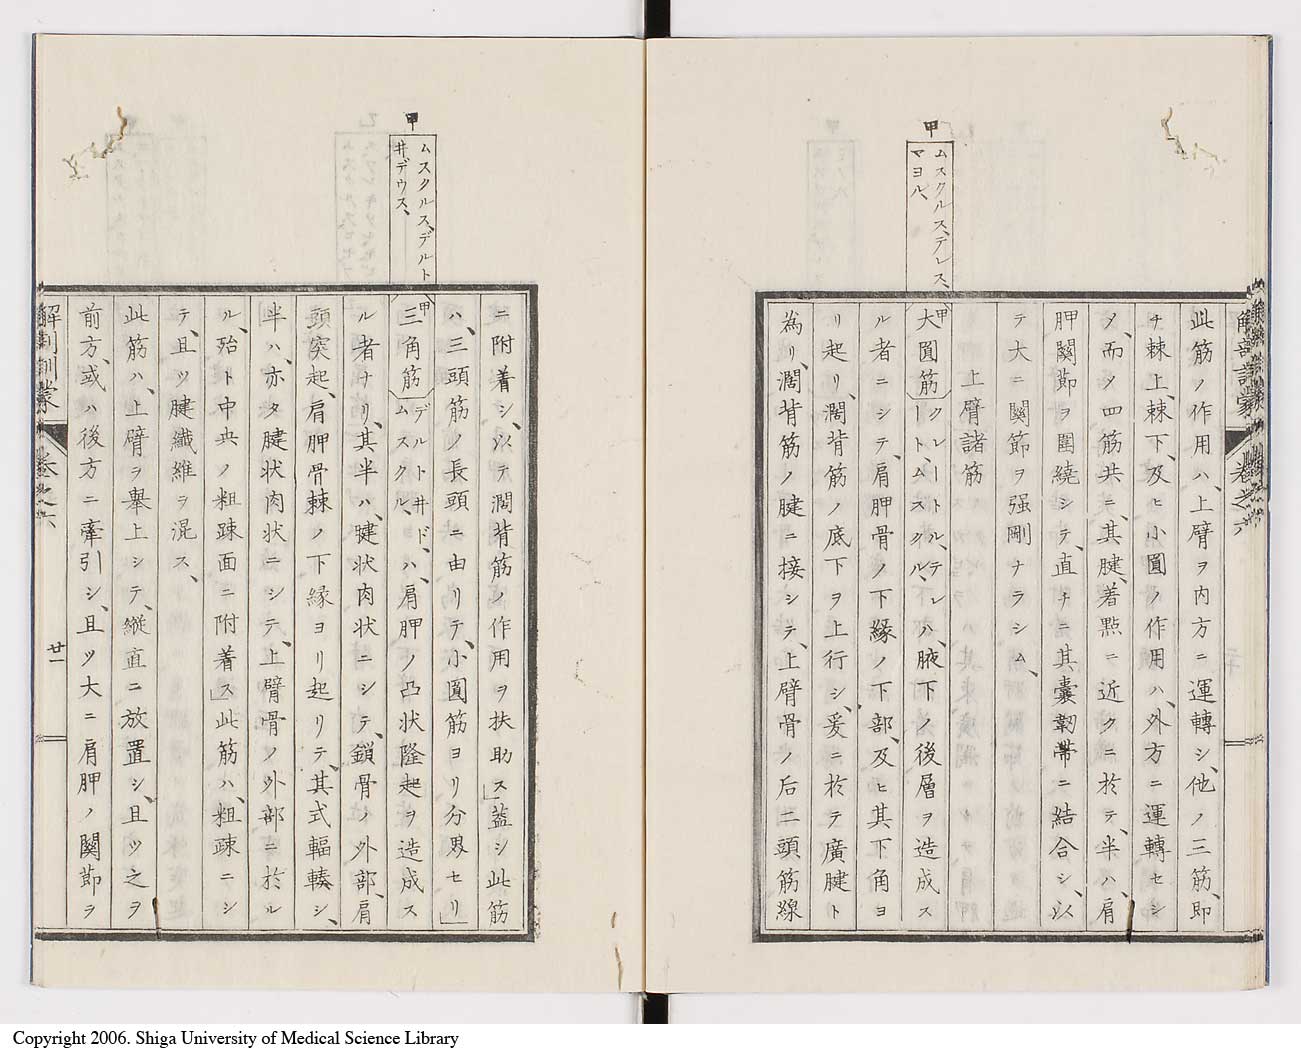 解剖訓蒙
巻之六
此筋ノ作用ハ、上臂ヲ内方ニ運轉シ、他ノ三筋、即
チ棘上、棘下、及ヒ小圓ノ作用ハ、外方ニ運轉セシ
メ、而メ四筋共ニ、其腱、着點ニ近クニ於テ、半ハ、肩
胛関節ヲ囲繞シテ、直チニ其囊靭帯ニ結合シ、以
テ大ニ関節ヲ强剛ナラシム、
上臂諸筋
甲
ムスクルス、テレス、
マヨル、
甲
大圓筋
クレートル、テレ
ート、ムスクル、
ハ、腋下ノ後層ヲ造成ス
ル者ニシテ、肩胛骨ノ下緣ノ下部、及ヒ其下角ヨ
リ起リ、濶背筋ノ底下ヲ上行シ、爰ニ於テ廣腱ト
為リ、濶背筋ノ腱ニ接シテ、上臂骨ノ后二頭筋線
ニ附着シ、以テ濶背筋ノ作用ヲ扶助ス」蓋シ此筋
ハ、三頭筋ノ長頭ニ由リテ、小圓筋ヨリ分界セリ」
甲
ムスクルス、デルト
井デウス、
甲
三角筋
デルト井ド、
ムスクル、
ハ、肩胛ノ凸状隆起ヲ造成ス
ル者ナリ、其半ハ、腱状肉状ニシテ、鎖骨ノ外部、肩
頭突起、肩胛骨棘ノ下緣ヨリ起リテ、其式輻輳シ、
半ハ、亦タ腱状肉状ニシテ、上臂骨ノ外部ニ於ル
ル、殆ト中央ノ粗疎面ニ附着ス」此筋ハ、粗疎ニシ
テ、且ツ腱纖維ヲ混ス、
此筋ハ、上臂ヲ擧上シテ、縱直ニ放置シ、且ツ之ヲ
前方、或ハ後方ニ牽引シ、且ツ大ニ肩胛ノ関節ヲ
解剖訓蒙
巻之六
廿一
Copyright 2006. Shiga University of Medical Science Library